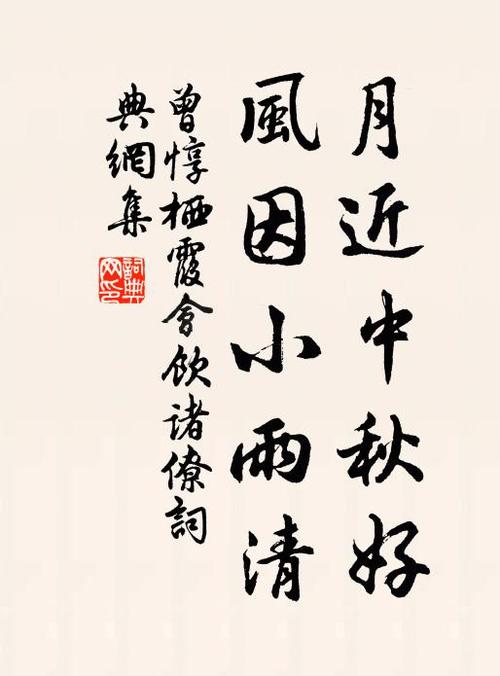 月近中秋好
風因小雨清
曾惇栖霞會飲諸僚詞
典網集
詞典
網印